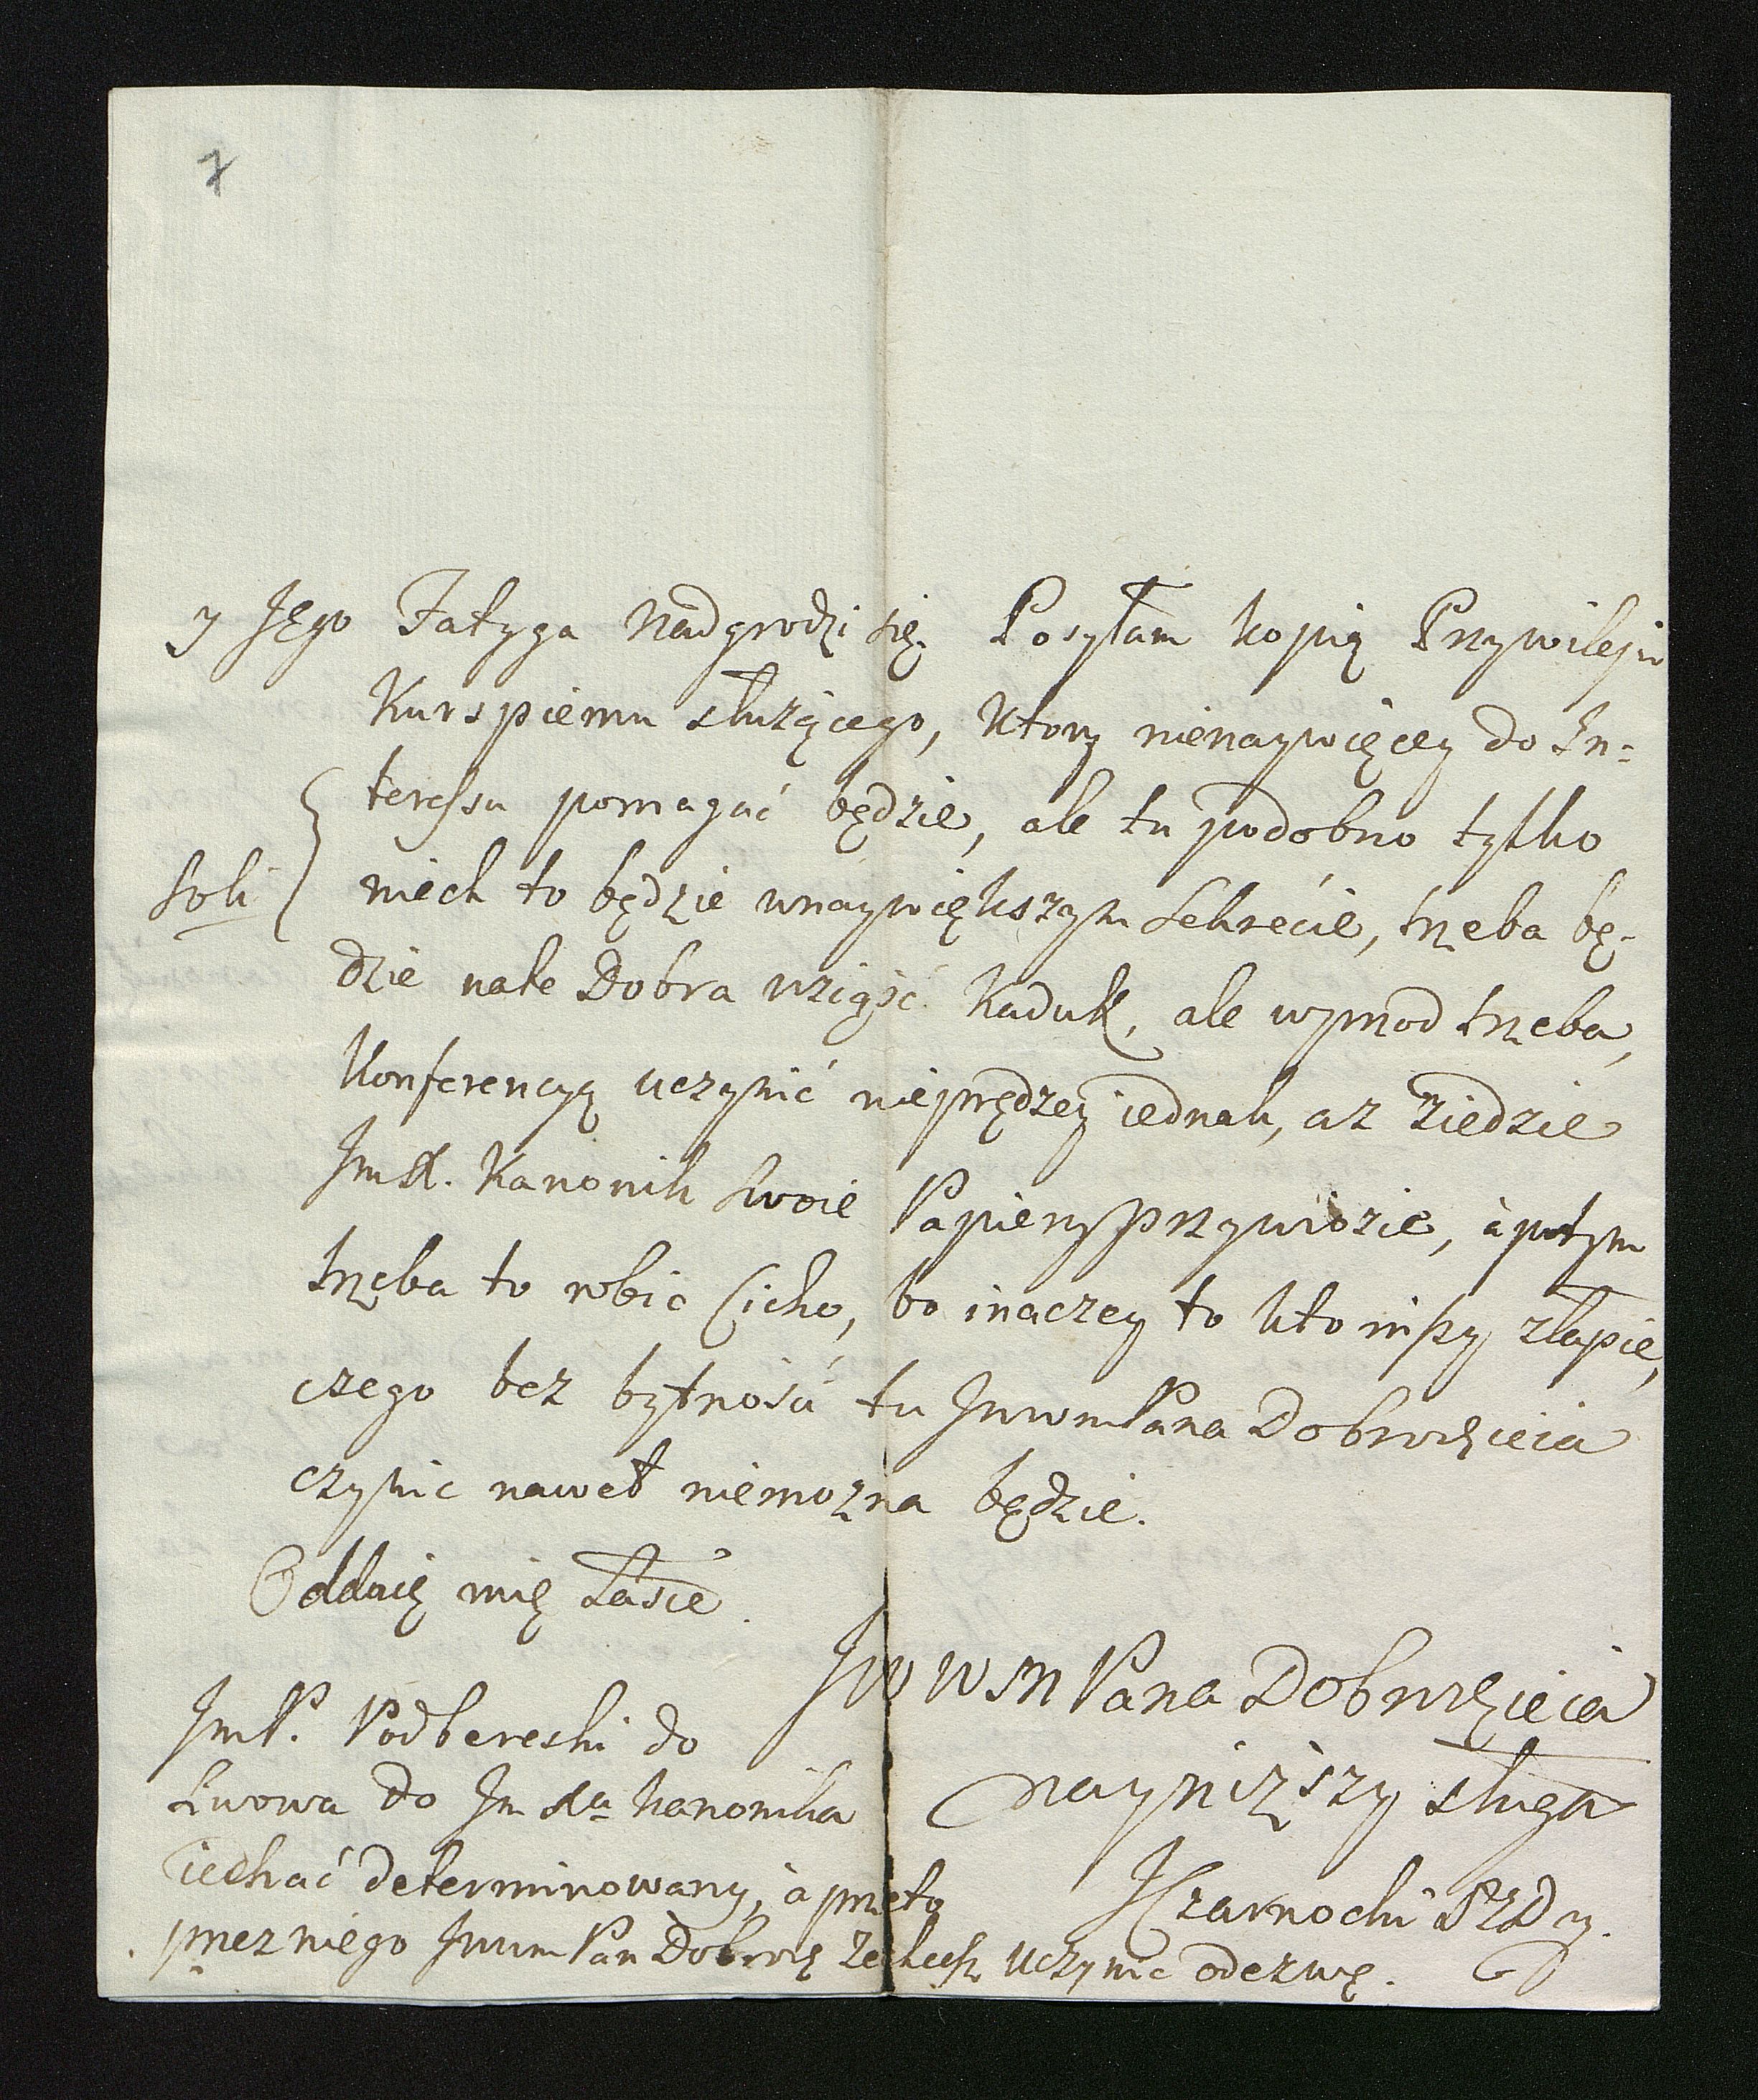 7
y Jego Fatyga nadgrodzi się. Posyłam kopią Przywileju
Kurspiemu służącego, ktory nienaywięcey do In=
teressu pomagać będzie, ale tu podobno tylko
Soli
niech to będzie wnaywiększym Sekrecie, trzeba bę-
dzie nate Dobra wziąść Kaduk, ale wprzod trzeba,
Konferencyą uczynić nieprędzey iednak, az ziedzie
JmX. Kanonik Swoie Papiery przywiozie, á potym
trzeba to robic Cicho, bo inaczey to kto inszy złapie,
czego bez bytności tu JwwmPana Dobrodzieia
czynic nawet niemozna będzie.
Oddaię mię Łasce
JWWM Pana Dobrodzieia
nayniższy sługa
JCzarnocki
JmP. Podbereski do
Lwowa do Jm Xa Kanonika
iechać determinowany, á przeto
przez niego Jwwm Pan Dobrodz zechcesz uczynic odezwę.